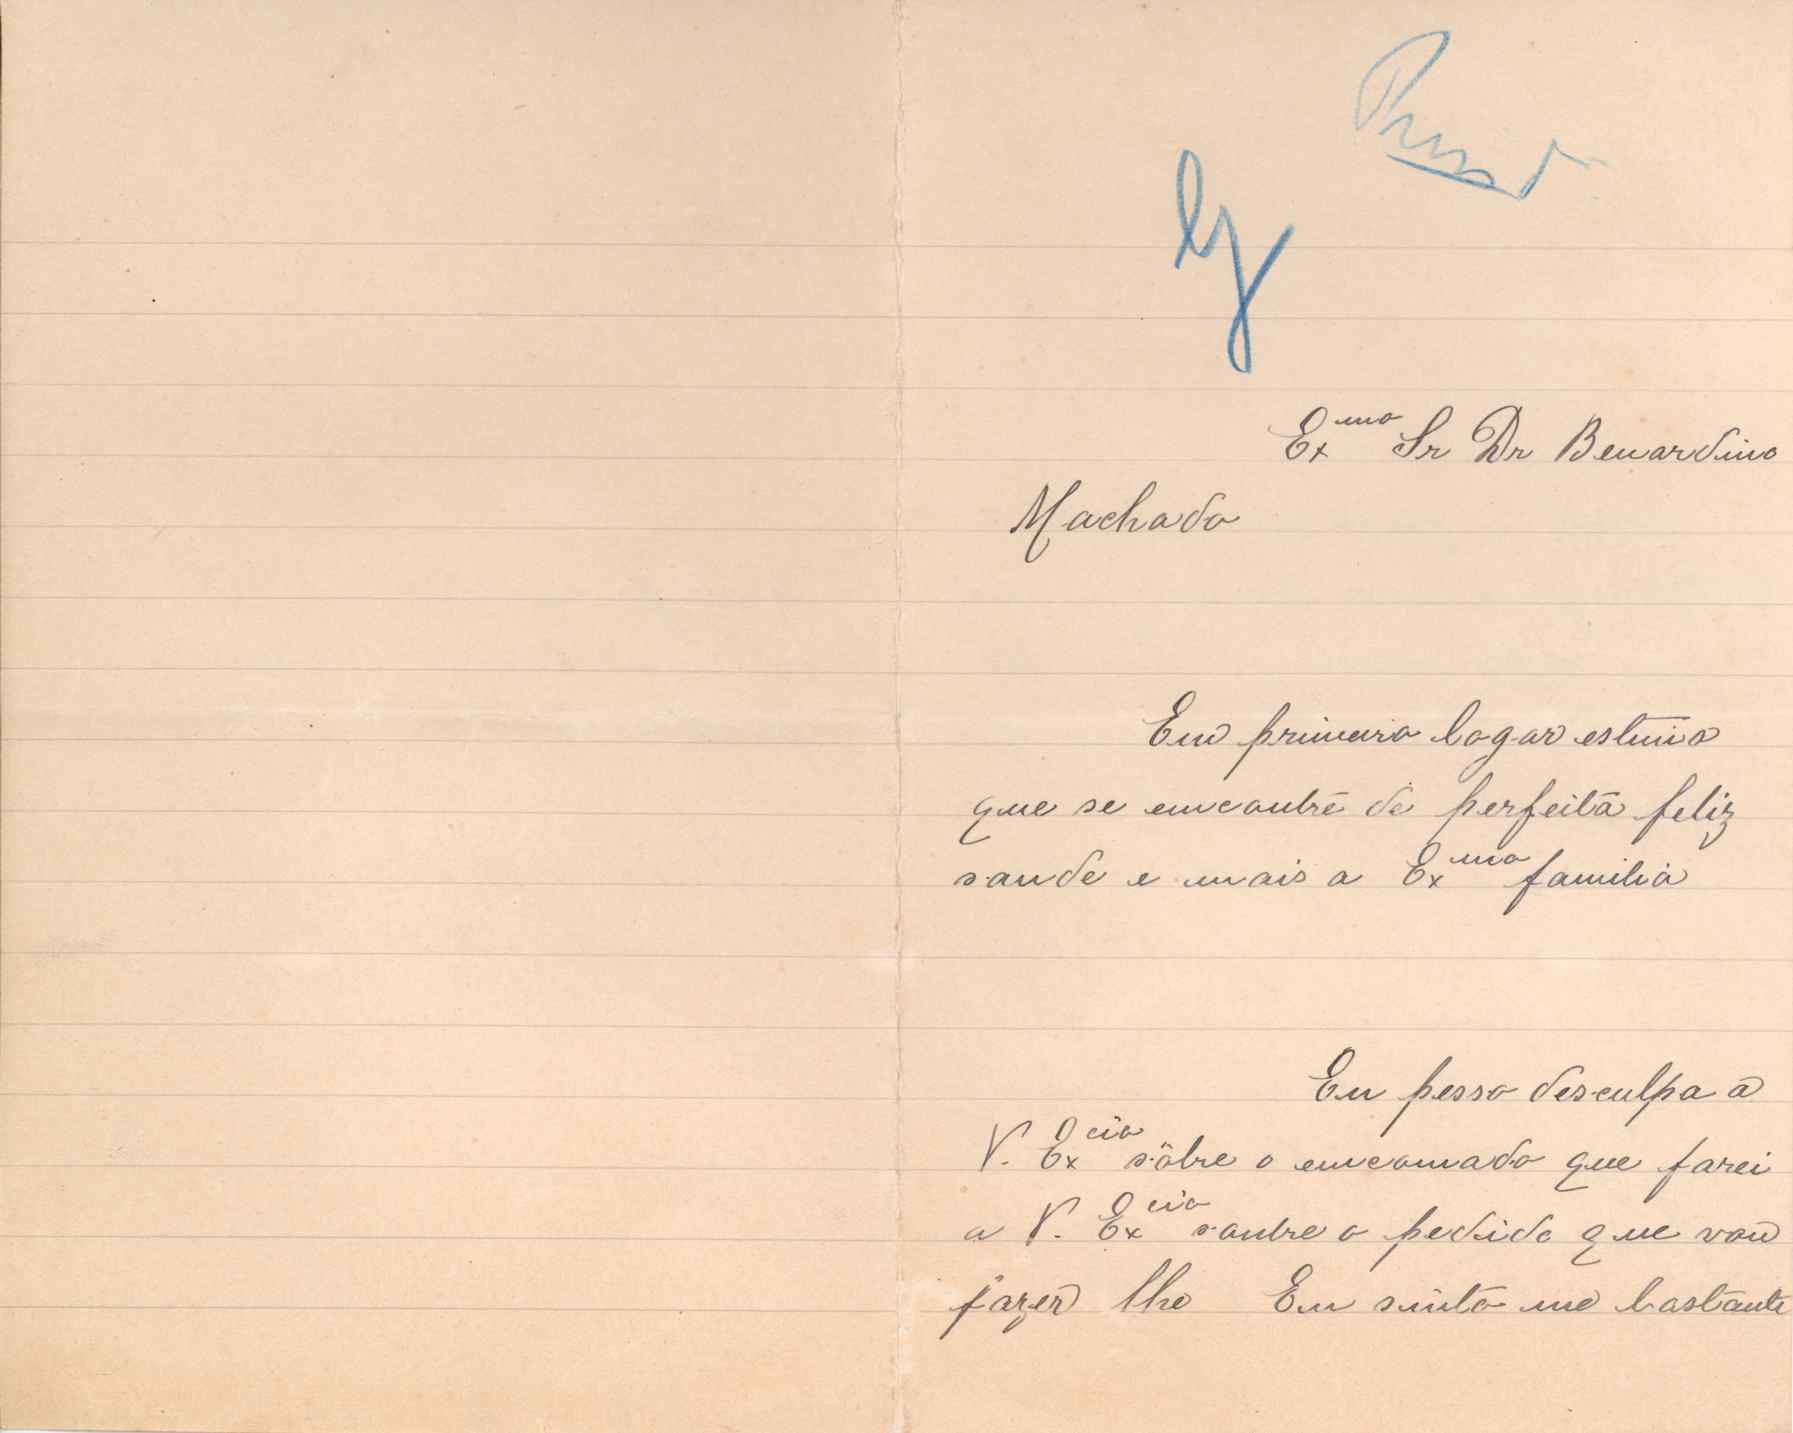 Exmo Sr Dr Benardino
Machado
Em primeiro logar estimo
que se encontre de perfeita feliz
saude e mais a Exma familia
Eu pesso desculpa a
V. Excia sôbre o encomado que farei
a V. Excia soubre o pedido que vou
fazer lhe Eu sinto me bastante